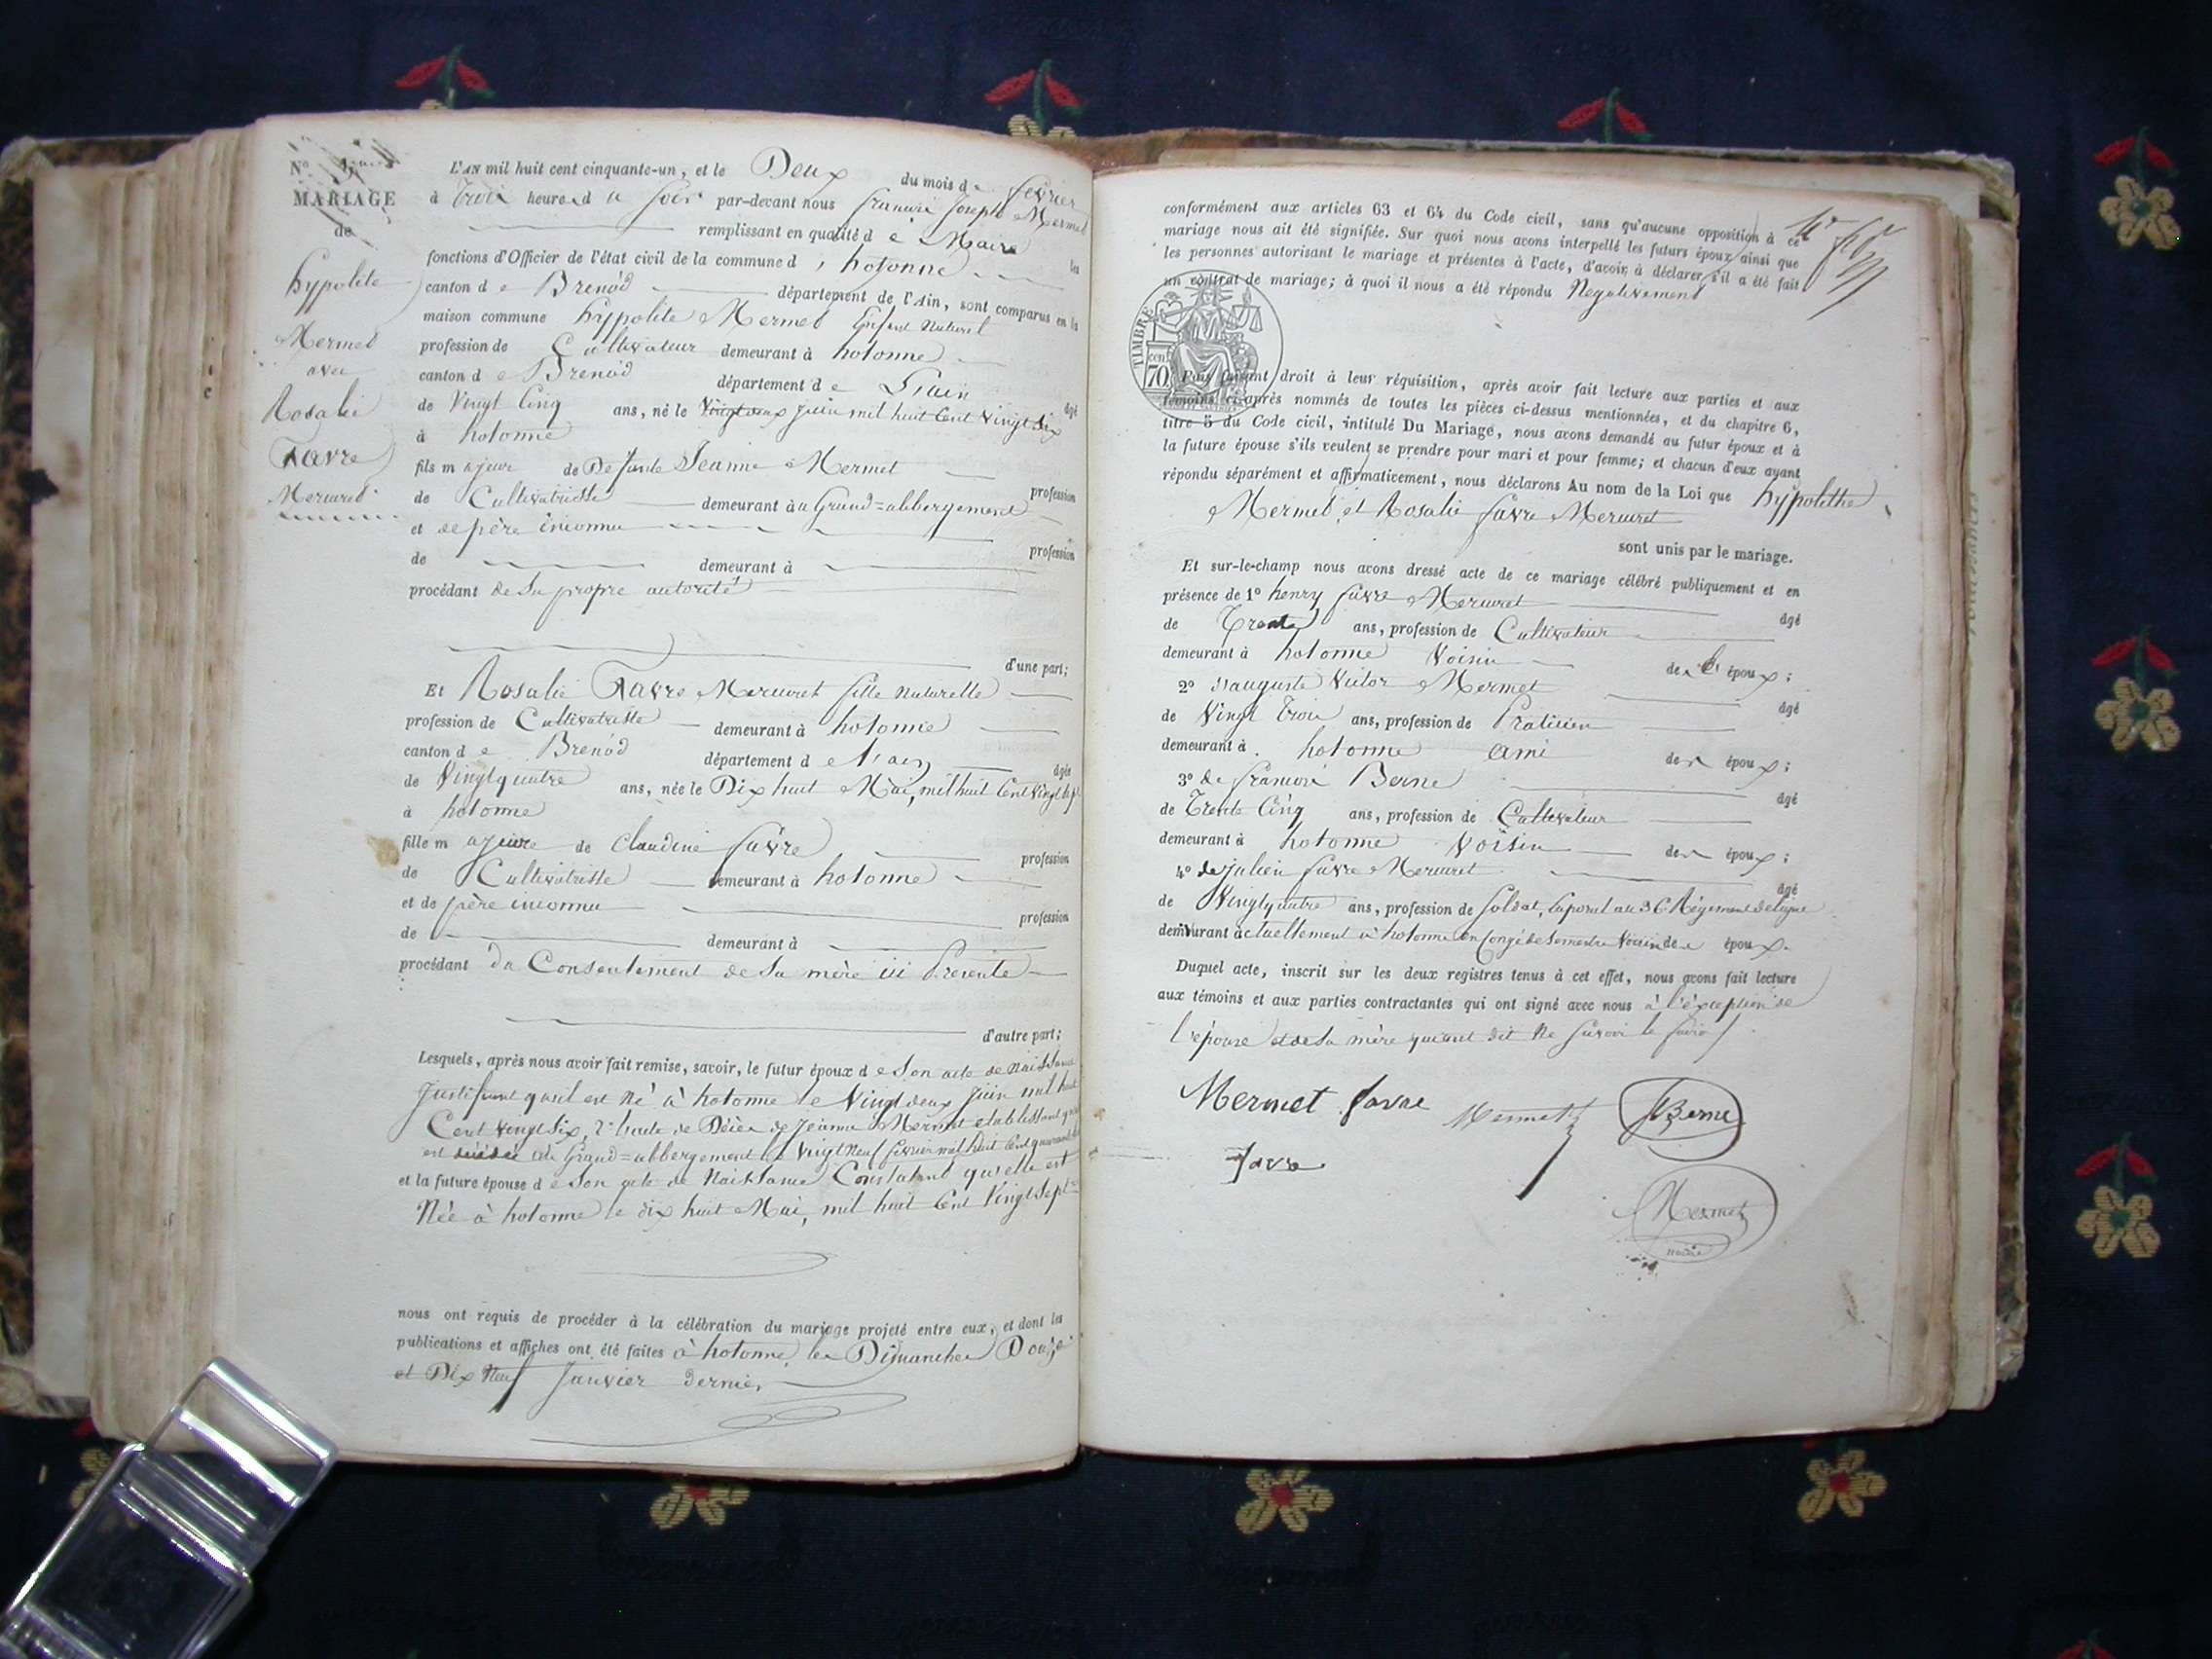 MARIAGE
de
hypolite
Mermet
avec
Rosalie
Favre
Mermet
L'AN mil huit cent cinquante-un, et le Deux du mois de février
à trois heures du soir par-devant nous françois Joseph Mermet
remplissant en qualité de Maire les
fonctions d'Officier de l'état civil de la commune d'hotonne
canton de Brenod département de l'Ain, sont comparus en la
maison commune hypolite Mermet Enfant Naturel
profession de Cultivateur demeurant à hotonne
canton de Brenod département de L'ain âgé
de Vingt Cinq ans, né le Vingt deux Juin mil huit Cent Vingt Six
à hotonne
fils majeur de Defunte Jeanne Mermet profession
de Cultivatrisse demeurant au Grand=abbergement
et de père inconnu profession
de demeurant à
procédant de Sa propre autorité
d'une part;
Et Rosalie Favre Mermet fille Naturelle
profession de Cultivatrisse demeurant à hotonne
canton de Brenod département de l'ain âgée
de Vingt quatre ans, née le Dix huit Mai, mil huit Cent Vingt Sept
à hotonne
fille majeure de Claudine favre profession
de Cultivatrisse demeurant à hotonne
et de père inconnu profession
de demeurant à
procédant du Consentement de Sa mère ici Presente
d'autre part;
Lesquels, après nous avoir fait remise, savoir, le futur époux de Son acte de Naissance
Justifiant qu'il est Né à hotonne le Vingt deux Juin mil huit
Cent Vingt Six, l'acte de Décès de Jeanne Mermet etablissant
est décédée au Grand=abbergement le Vingt Neuf février mil huit Cent
et la future épouse de Son acte de Naissance Constatant qu'elle est
Née à hotonne le dix huit Mai, mil huit Cent Vingt Sept
nous ont requis de procéder à la célébration du mariage projeté entre eux, et dont les
publications et affiches ont été faites à hotonne, les Dimanches Douze
et Dix Neuf Janvier dernier
conformément aux articles 63 et 64 du Code civil, sans qu'aucune opposition à ce
mariage nous ait été signifiée. Sur quoi nous avons interpellé les futurs époux ainsi que
les personnes autorisant le mariage et présentes à l'acte, d'avoir à déclarer s'il a été fait
un contrat de mariage; à quoi il nous a été répondu Negativement
TIMBRE
70 cen
Puis faisant droit à leur réquisition, après avoir fait lecture aux parties et aux
témoins ci-après nommés de toutes les pièces ci-dessus mentionnées, et du chapitre 6,
titre 5 du Code civil, intitulé Du Mariage, nous avons demandé au futur époux et à
la future épouse s'ils veulent se prendre pour mari et pour femme; et chacun d'eux ayant
répondu séparément et affirmativement, nous déclarons Au nom de la Loi que hypolithe
Mermet et Rosalie favre Mermet
sont unis par le mariage.
Et sur-le-champ nous avons dressé acte de ce mariage célébré publiquement et en
présence de 1° henry favre Mermet âgé
de Trente ans, profession de Cultivateur
demeurant à hotonne Voisin des époux;
2° d'auguste Victor Mermet âgé
de Vingt Trois ans, profession de Praticien
demeurant à hotonne ami des époux;
3° de françois Berne âgé
de Trente Cinq ans, profession de Cultivateur
demeurant à hotonne Voisin des époux;
4° de Julien favre Mermet âgé
de Vingt quatre ans, profession de Soldat, Caporal au 36 Régiment de ligne
demeurant actuellement à hotonne en Congé de Semestre Voisin des époux.
Duquel acte, inscrit sur les deux registres tenus à cet effet, nous avons fait lecture
aux témoins et aux parties contractantes qui ont signé avec nous à l'éxception de
l'épouse et de Sa mère qui ont dit Ne Savoir le faire
Mermet favre Mermet Berne
favre
Mermet
maire